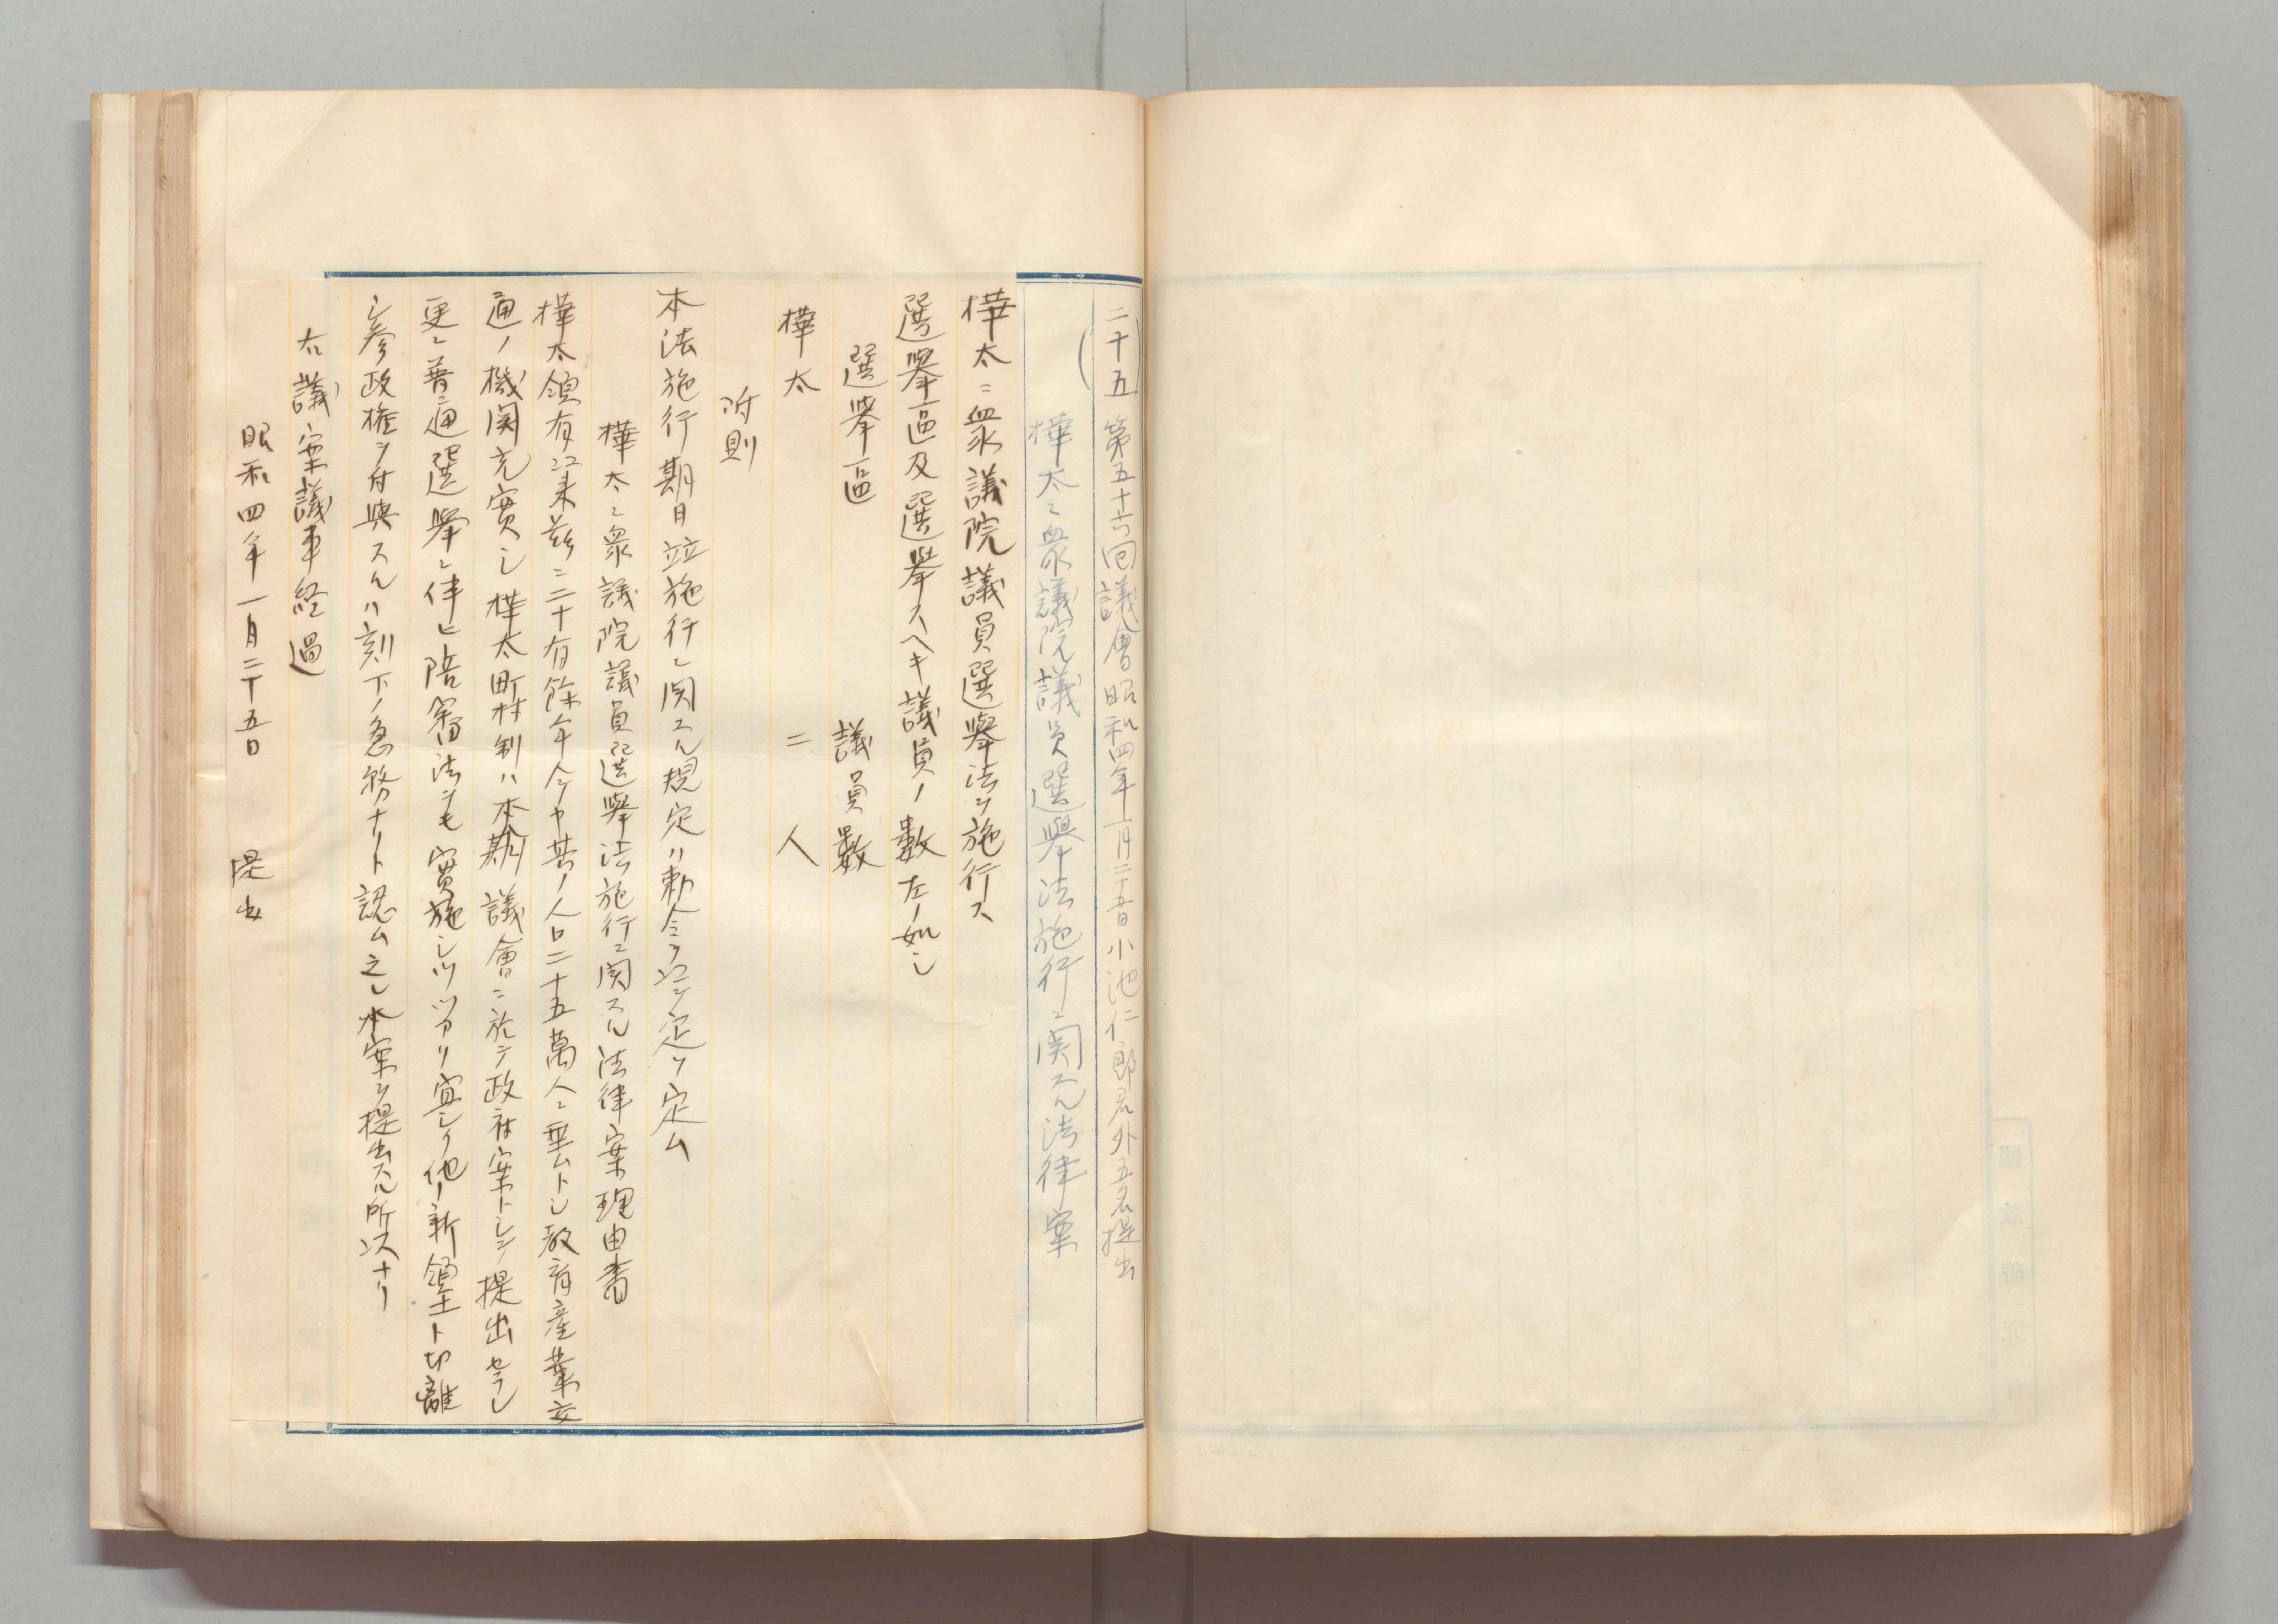 (二十五)第五十六回議會昭和四年一月二十五日小池仁郎君外五名提出
樺太ニ衆議院議員選擧法施行ニ関スル法律案
樺太ニ衆議院議員選擧法ヲ施行ス
選擧區及選擧スヘキ議員ノ數左ノ如シ
選擧區 議員數
樺太 二人
附則
本法施行期日竝施行ニ関スル規定ハ勅令ヲ以テ之ヲ定ム
樺太ニ衆議院議員選擧法施行ニ関スル法律案理由書
樺太領有以来茲ニ二十有餘年今ヤ其ノ人口二十五萬人ニ垂ムトシ教育産業交
通ノ機関充實シ樺太町村制ハ本期議會ニ於テ政府案トシテ提出セラレ
更ニ普通選擧ニ伴ヒ陪審法ヲモ實施シツツアリ宜シク他ノ新領土ト切離
シ参政権ヲ付與スルハ刻下ノ急務ナリト認ム之レ本案ヲ提出スル所以ナリ
右議案議事経過
昭和四年一月二十五日 提出